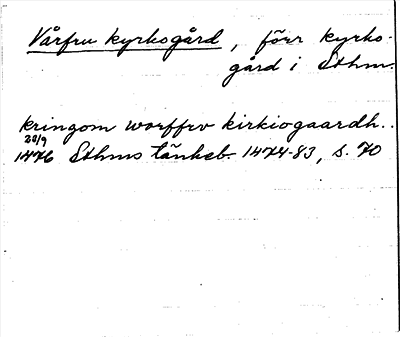 Vårfru kyrkogård, förr kyrko-
gård i Sthm.
kringom worffrv kirkiogaardh..
20/9
1476 Sthms tänkeb. 1474-83, s. 70